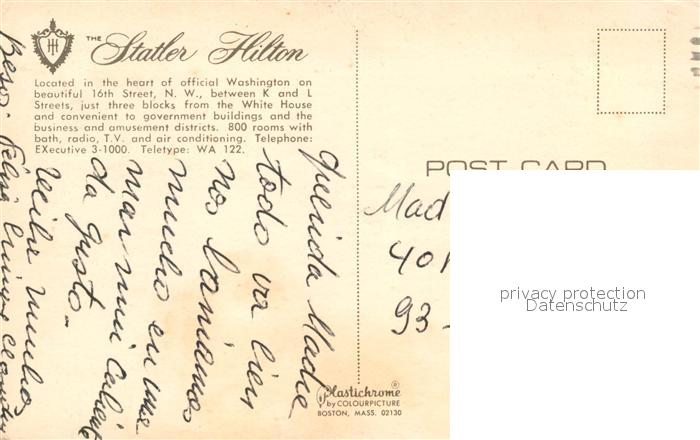 THE Statler Hilton
Located in the heart of official Washington on
beautiful 16th Street, N. W., between K and L
Streets, just three blocks from the White House
and convenient to government buildings and the
business and amusement districts. 800 rooms with
bath, radio, T.V. and air conditioning. Telephone:
EXecutive 3-1000. Teletype: WA 122.
Querida Madre
todo va bien
nos bañamos
mucho en una
mar muy calient
da gusto.
recibe muchos
Besos
POST CARD
Mad
401
93-
privacy protection
Datenschutz
Plastichrome ®
by COLOURPICTURE
BOSTON, MASS. 02130